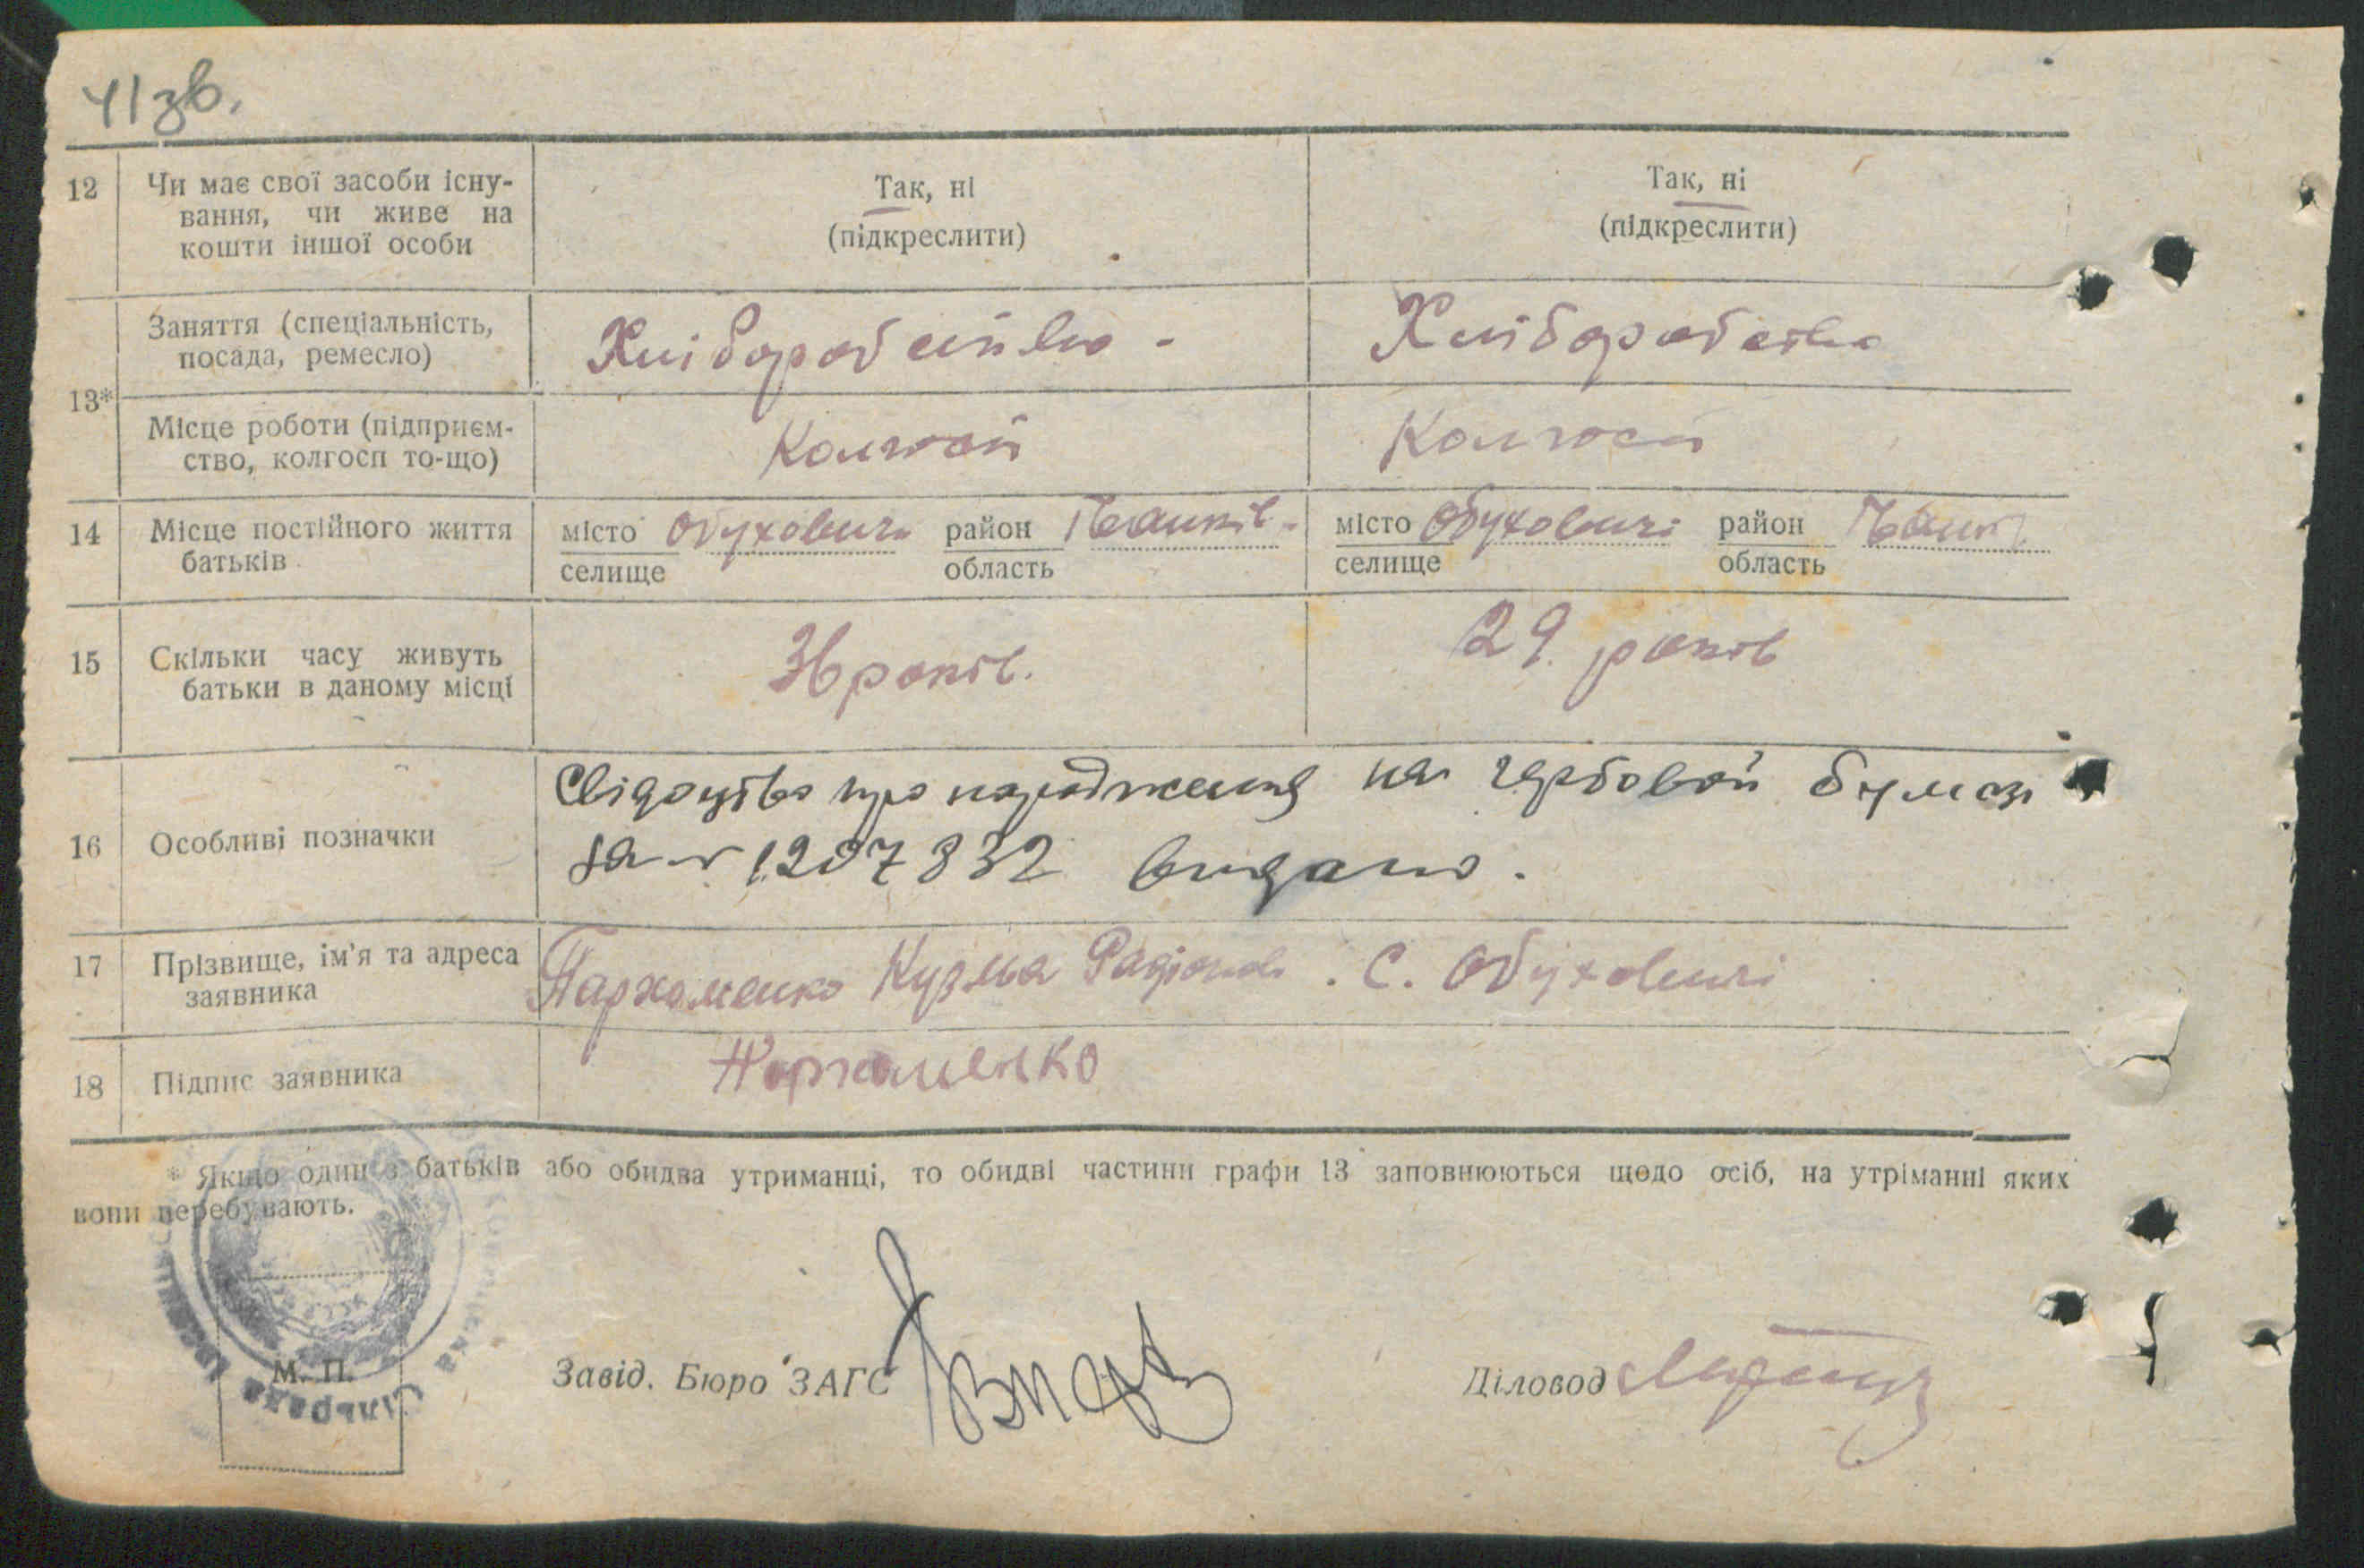 41зв.
12 Чи має свої засоби існу- Так, ні Так, ні
вання, чи живе на (підкреслити) (підкреслити)
кошти іншої особи
13* Заняття (спеціальність, Хліборобство - Хліборобство
посада, ремесло)
Місце роботи (підприєм- Колгосп Колгосп
ство, колгосп то-що)
14 Місце постійного життя місто Обуховичі район Іванків. місто Обуховичі район Іванк.
батьків селище область селище область
15 Скільки часу живуть 36 років. 29 років
батьки в даному місці
16 Особливі позначки Свідоцтво про народження на гербовой бумазі
за № 1207832 видано.
17 Прізвище, ім'я та адреса Пархоменко Кузма Радіонов. С. Обуховичі
заявника
18 Підпис заявника Пархоменко
* Якщо один з батьків або обидва утриманці, то обидві частини графи 13 заповнюються щодо осіб, на утріманні яких
вони перебувають.
М. П. Завід. Бюро ЗАГС Діловод